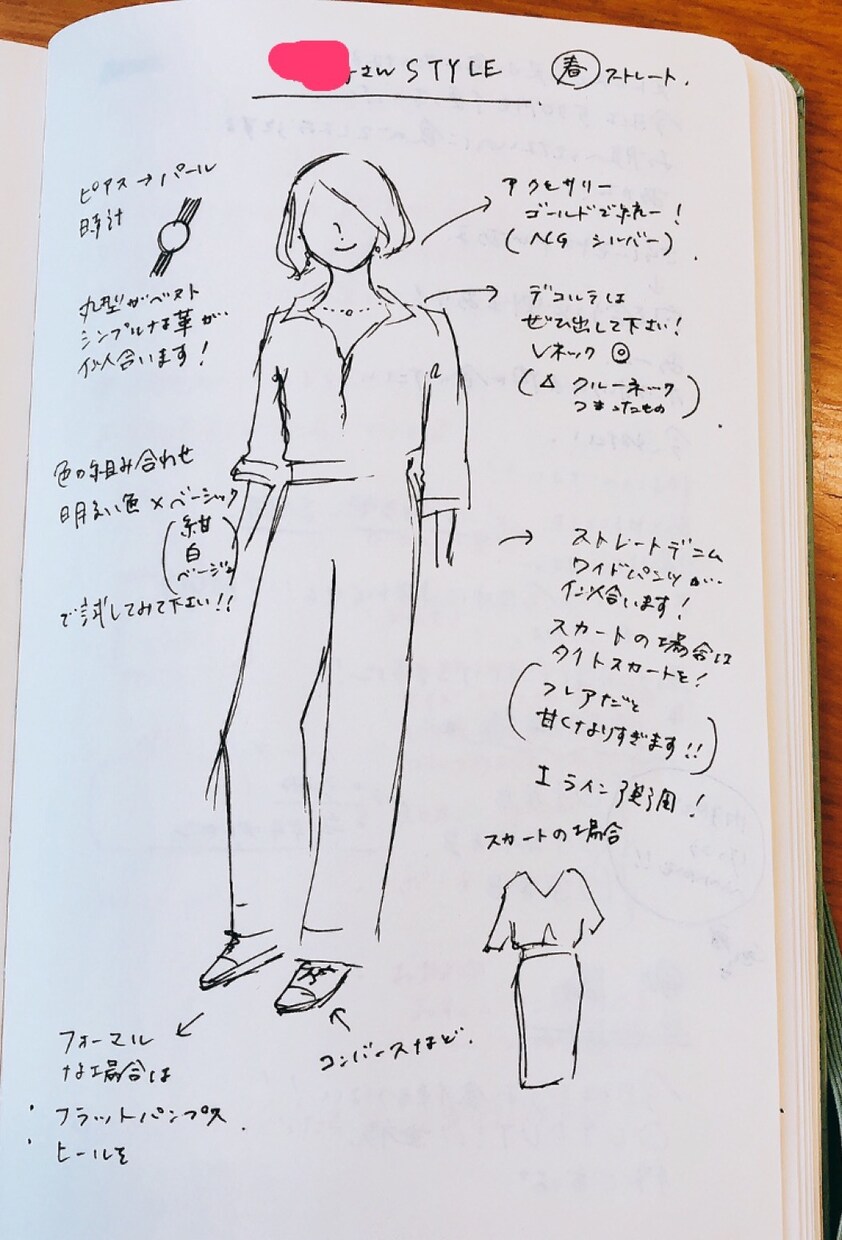 さん STYLE 春 ストレート.
ピアス→パール
時計
丸型がベスト
シンプルな革が
似合います!
色の組み合わせ
明るい色×ベーシック
(紺
白
ベージュ)
で試してみて下さい!!
アクセサリー
ゴールドで統一!
(NG シルバー).
デコルテは
ぜひ出して下さい!
Vネック ◎
(△ クルーネック
つまったもの).
ストレートデニム
ワイドパンツが
似合います!
スカートの場合は
タイトスカートを!
(フレアだと
甘くなりすぎます!!)
Iライン強調!
スカートの場合
フォーマル
な場合は
・フラットパンプス.
・ヒールを
コンバースなど.